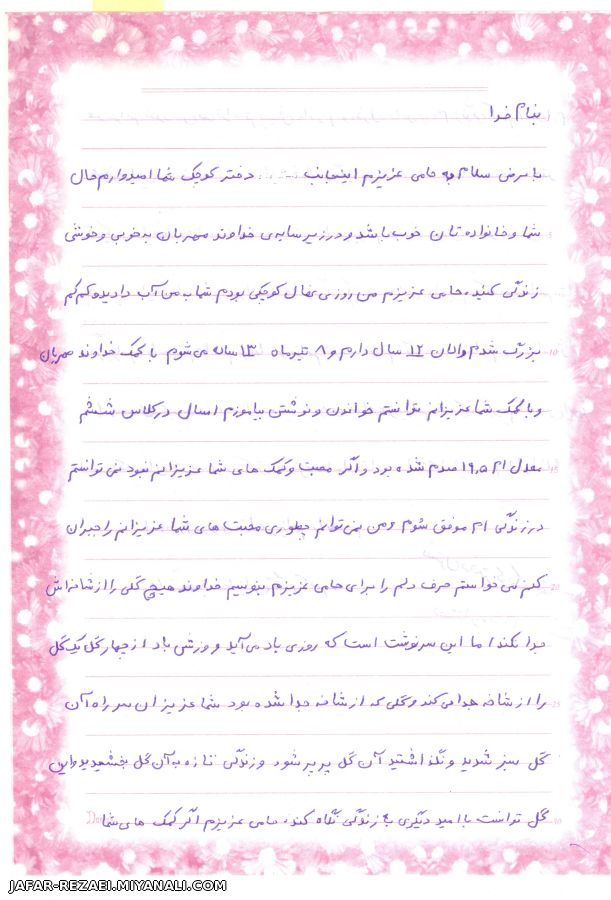 بنام خدا
با عرض سلام به حامی عزیزم اینجانب ..... دختر کوچک شما امیدوارم حال
شما و خانواده تان خوب باشد و در زیر سایه ی خداوند مهربان به خوبی و خوشی
زندگی کنید. حامی عزیزم من روزی نهال کوچکی بودم شما به من آب دادید و کم کم
بزرگ شدم و الان ۱۲ سال دارم و ۸ تیرماه ۱۳ ساله می شوم با کمک خداوند مهربان
و با کمک شما عزیزانم توانستم خواندن و نوشتن بیاموزم امسال در کلاس ششم
معدل ام ۱۹٫۵ شده بود و اگر محبت و کمک های شما عزیزانم نبود نمی توانستم
در زندگی ام موفق شوم و من نمی توانم چطوری محبت های شما عزیزانم را جبران
کنم می خواستم حرف دلم را برای حامی عزیزم بنویسم خداوند هیچ گلی را از شاخه اش
جدا نکند اما این سرنوشت است که روزی باد می آید و وزش باد از چهار گل یک گل
را از شاخه جدا می کند و گلی که از شاخه جدا شده بود شما عزیزان سر راه آن
گل سبز شدید و نگذاشتید آن گل پرپر شود و زندگی تازه به آن گل بخشیدید و این
گل توانست با امید دیگری به زندگی نگاه کند. حامی عزیزم اگر کمک های شما
JAFAR-REZAEI.MIYANALI.COM